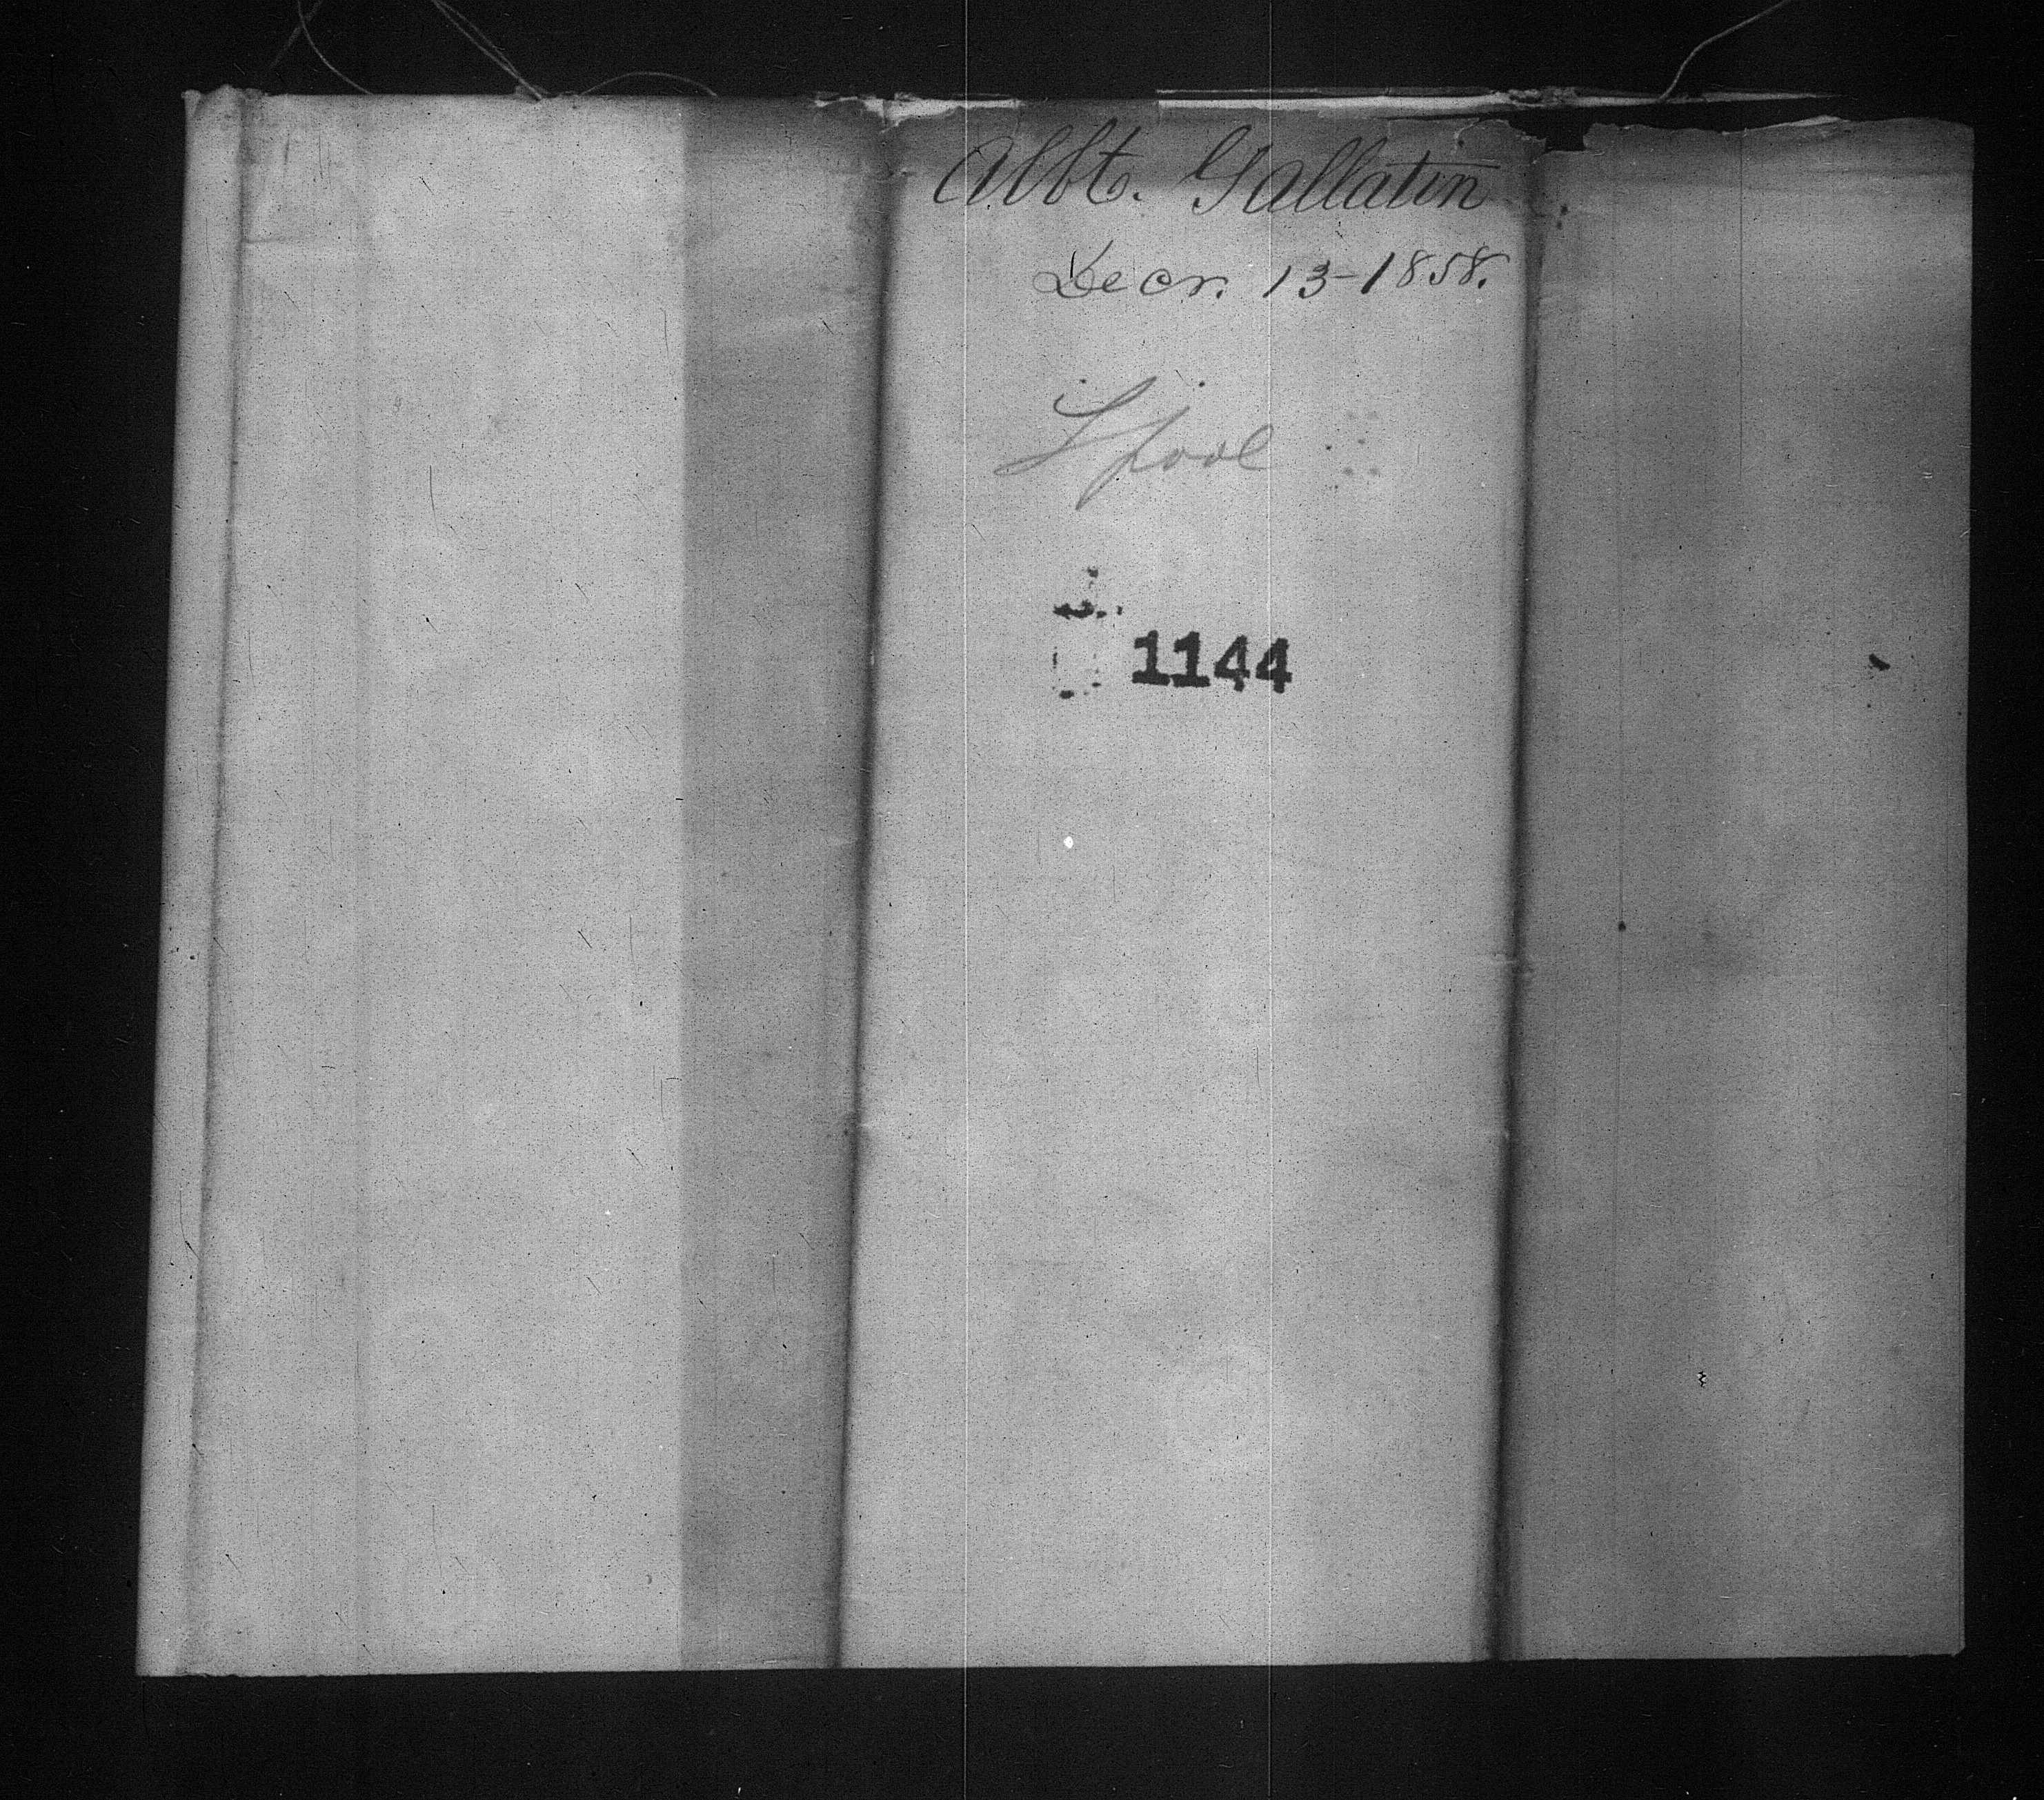 Albt. Gallatin
Decr. 13-1858.
L'pool
1144